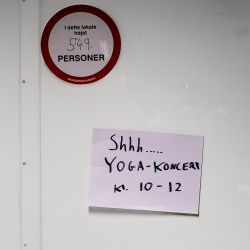 I dette lokale
højst
549
PERSONER
Shhh.....
YOGA-KONCERT
Kl. 10-12